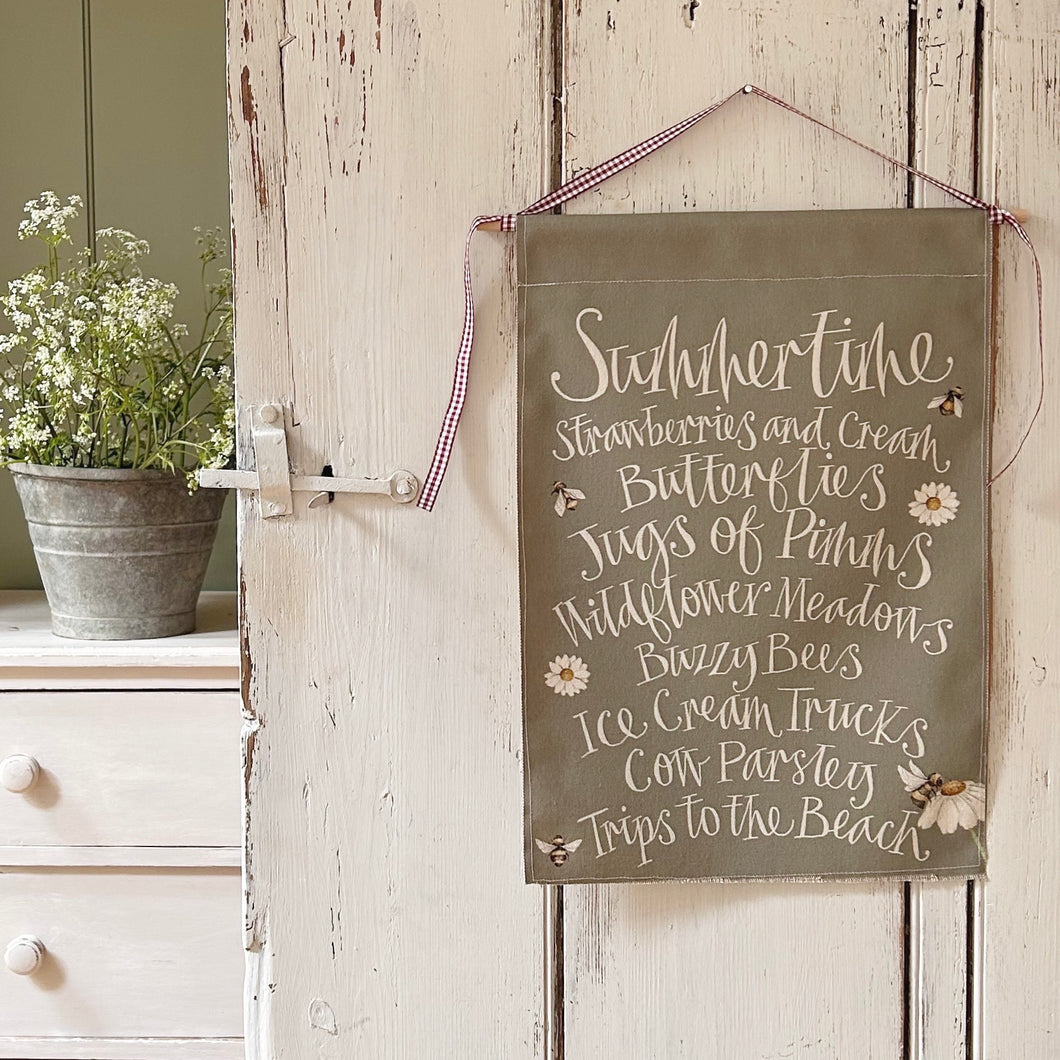 Summertime
Strawberries and Cream
Butterflies
Jugs of Pimms
Wildflower Meadows
Buzzy Bees
Ice Cream Trucks
Cow Parsley
Trips to the Beach